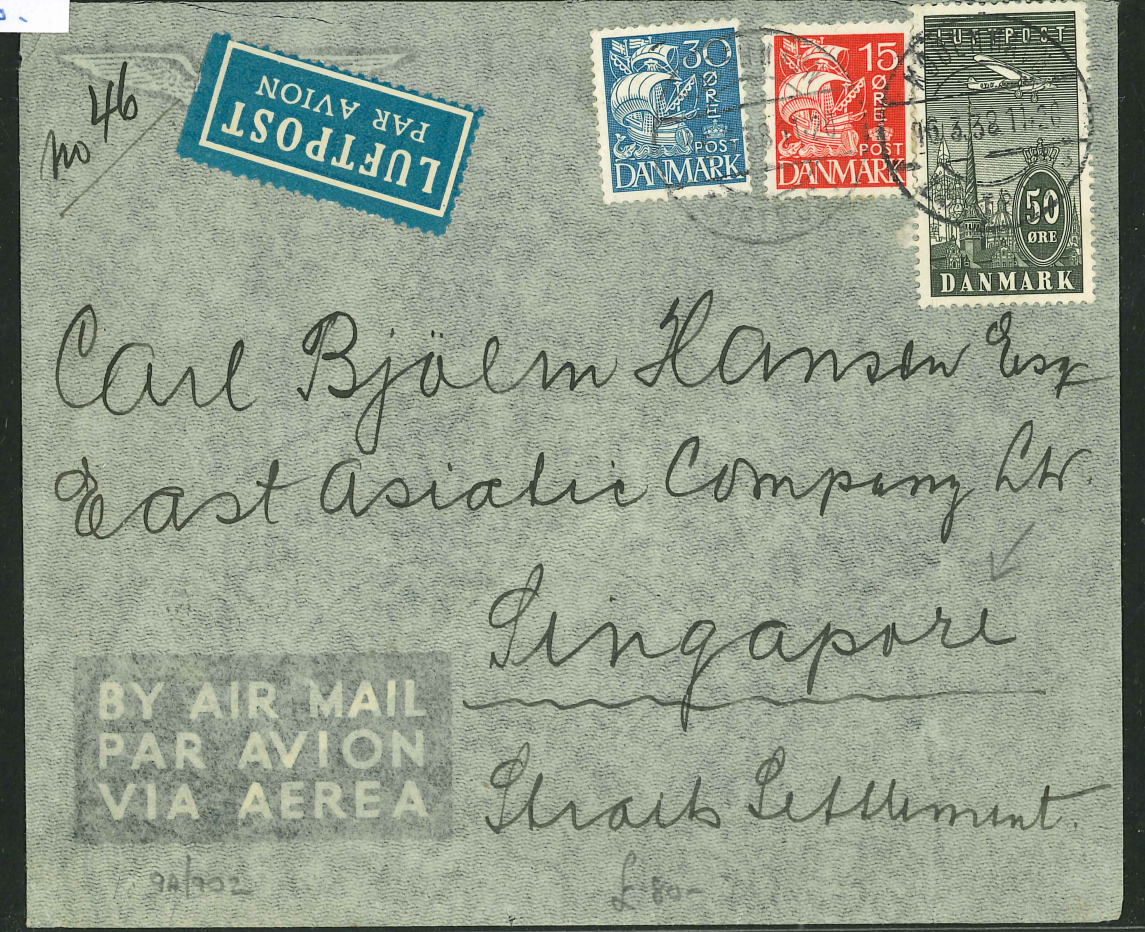 no 46
LUFTPOST
PAR AVION
30
ØRE
POST
DANMARK
15
ØRE
POST
DANMARK
LUFTPOST
50
ØRE
DANMARK
16.3.38
Carl Bjölm Hansen Esq
East Asiatic Company Ltd.
Singapore
Straits Settlement.
BY AIR MAIL
PAR AVION
VIA AEREA
9A/702
£ 80-